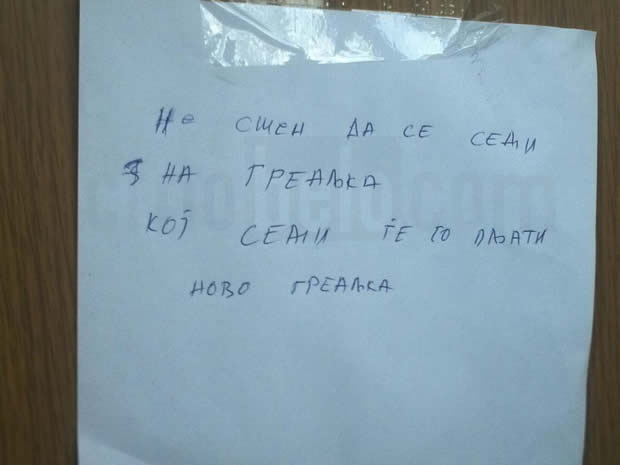 Не СШЕН ДА СЕ СЕДИ
НА ГРЕАЉКА
КОЈ СЕДИ ЃЕ ГО ПЉАТИ
НОВО ГРЕАЉКА